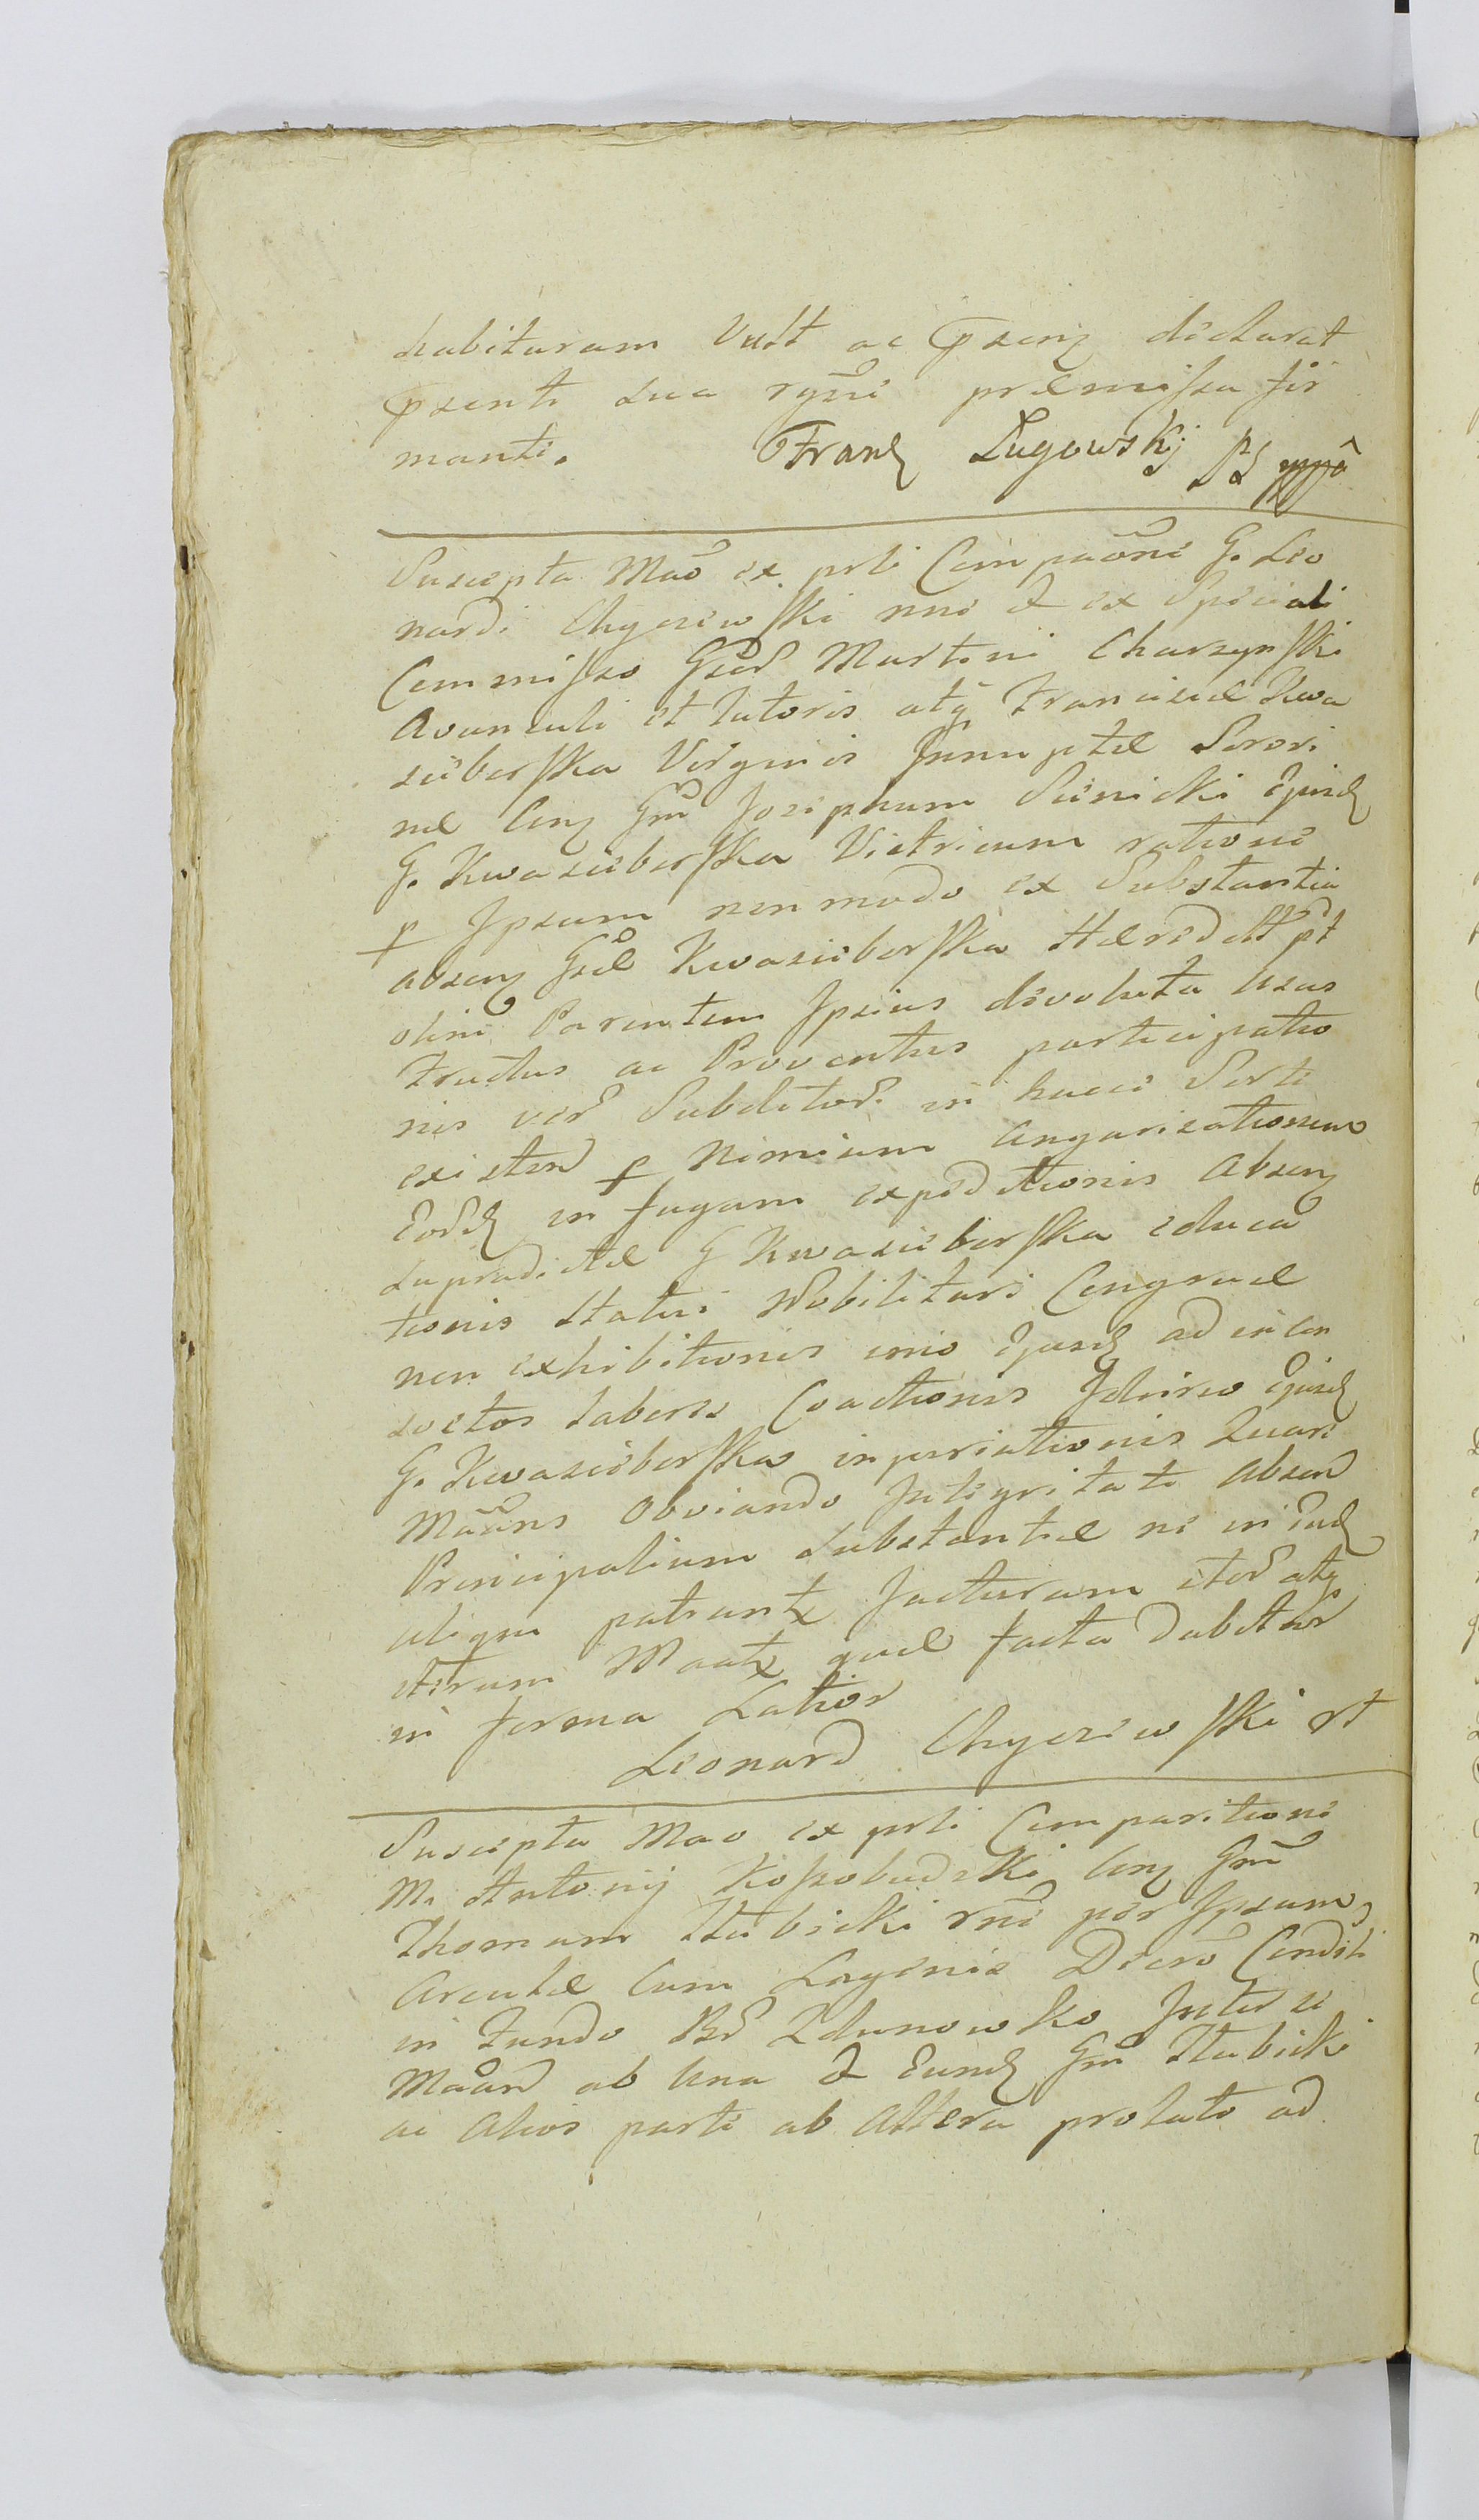 habituram Vult ac psens declarat
psenti sua rgni præmissa fir
manti. Franc Lugowskj
Suscepta Mao ex prti Compaoni G. Leo
nardi Chyczewski nne & ex Speciali
Commisso Gsor Martini Charzynski
Avunculi et Tutoris atq Francisæ Kwa
sieborska Virginis Innuptæ Serori
næ Cons Gm Josephum Sienicki Ejusd
G. Kwasieborska Vietricum ratione
p Ipsum non modo ex Substantia
absens Gsæ Kwasieborska Hæredett pt
olim Parentem Ipsius devoluta Usus
Fructus ac Proventus participatio
nis ver Subditor in hacce Sorti
existen p Nimium Angarisationem
Eosd in fugam expeditionis Absens
supradictæ G Kwasieborska educa
tionis Statui Nobilitari Congruæ
non exhibitionis imo Ejusd ad incon
svetos Labores Coactionis Idcirco Ejusd
G. Kwasieborska injuriationis Quare
Maans Obviando Integritati Absen
Principalium Substantiæ ne in Ead
aliqm patiant Jacturam iter atq
iterum Maatx quæ facta Dabitur
in forma Latior
Leonard Chyczewski rt
Suscepta Mao ex prti Comparitione
M. Antonij Kossobudzki Cons Gm
Thomam Itubicki rne per Ipsum
Areulæ Cum Lagenis Decro Conditi
in Fundo Br Zdunowko Inter se
Maan ab Una & Eund Gm Itubicki
ac Alios parti ab Altera prolato ad